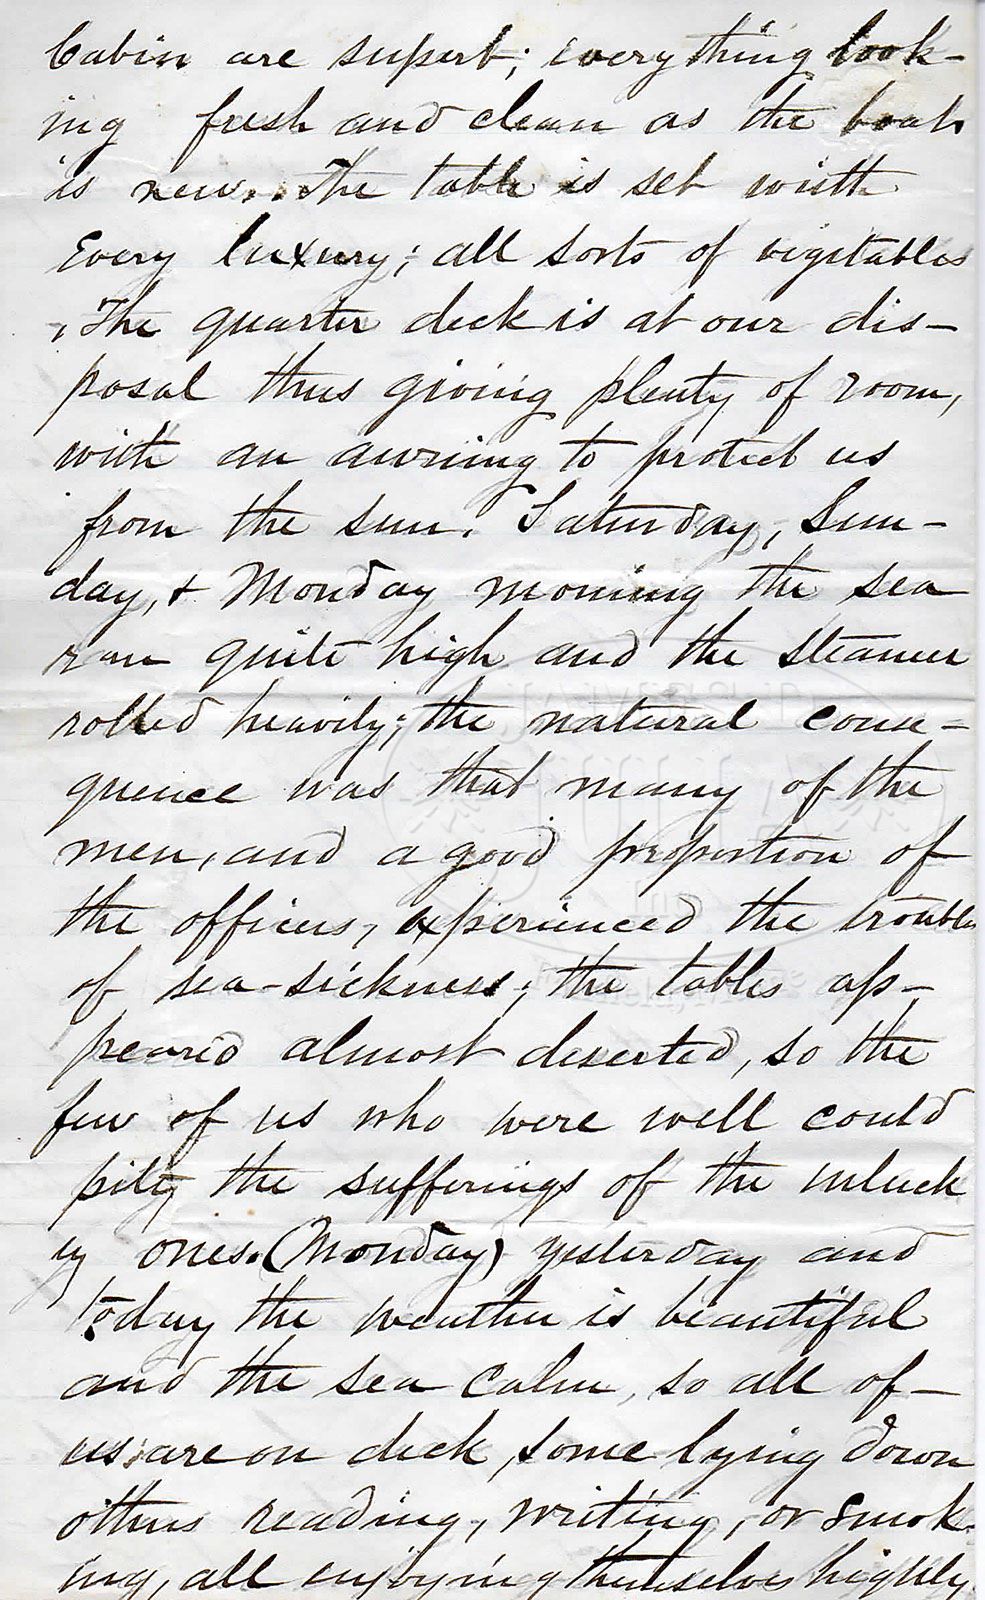 Cabin are superb; everything look-
ing fresh and clean as the boat
is new. The table is set with
every luxury; all sorts of vegitables
. The quarter deck is at our dis-
posal thus giving plenty of room,
with an awning to protect us
from the sun. Saturday, Sun-
day, + Monday morning the sea
ran quite high and the steamer
rolled heavily; the natural conse-
quence was that many of the
men, and a good proportion of
the officers, experienced the troubles
of sea-sickness; the tables ap-
peared almost deserted, so the
few of us who were well could
pity the sufferings of the unluck
y ones. (Monday) yesterday and
today the weather is beautiful
and the sea calm, so all of-
us are on deck, some lying down
others reading, writing, or smok-
ing, all enjoying themselves highly